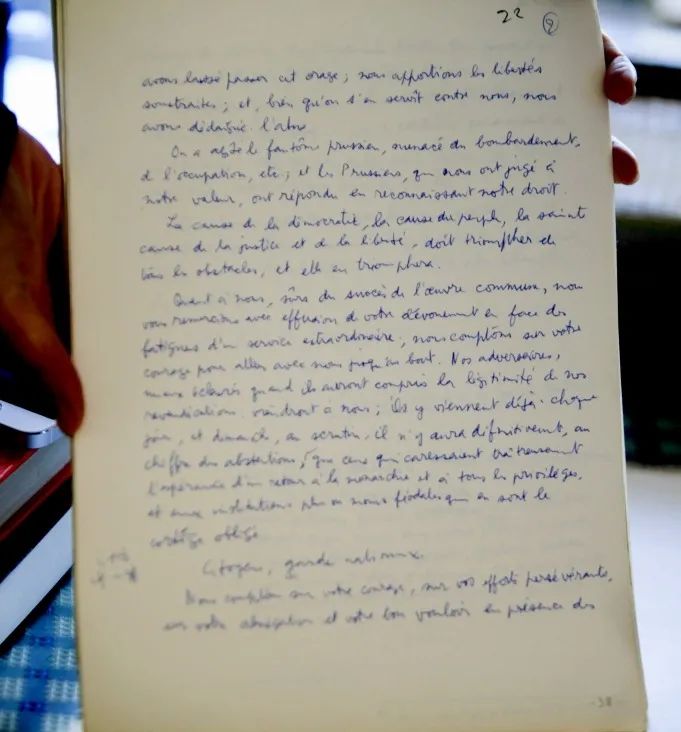 22 2
avons laissé passer cet orage ; nous apportions les libertés
soustraites ; et, bien qu'on s'en servît contre nous, nous
avons dédaigné l'abus
On a agité le fantôme prussien, menacé du bombardement,
de l'occupation, etc ; et les Prussiens, qui nous ont jugé à
notre valeur, ont répondu en reconnaissant notre droit.
La cause de la démocratie, la cause du peuple, la sainte
cause de la justice et de la liberté, doit triompher de
tous les obstacles, et elle en triomphera.
Quant à nous, sûrs du succès de l'œuvre commune, nous
vous remercions avec effusion de votre dévouement en face des
fatigues d'un service extraordinaire ; nous comptons sur votre
courage pour aller avec nous jusqu'au bout. Nos adversaires,
mieux éclairés quand ils auront compris la légitimité de nos
revendications viendront à nous ; ils y viennent déjà chaque
jour, et dimanche, au scrutin, il n'y aura définitivement, au
chiffre des abstentions, que ceux qui caressent traîtreusement
l'espérance d'un retour à la monarchie et à tous les privilèges,
et aux institutions plus ou moins féodales qui en sont le
cortège obligé
Citoyens, gardes nationaux.
Nous comptons sur votre courage, sur vos efforts persévérants,
sur votre abnégation et votre bon vouloir en présence des
38